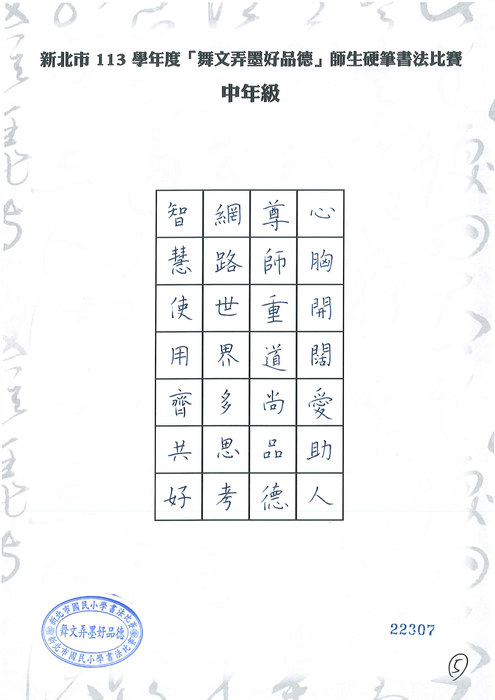 新北市 113 學年度「舞文弄墨好品德」師生硬筆書法比賽
中年級
心胸開闊愛助人
尊師重道尚品德
網路世界多思考
智慧使用齊共好
新北市國民小學書法比賽
舞文弄墨好品德
新北市國民小學書法比賽
22307
5